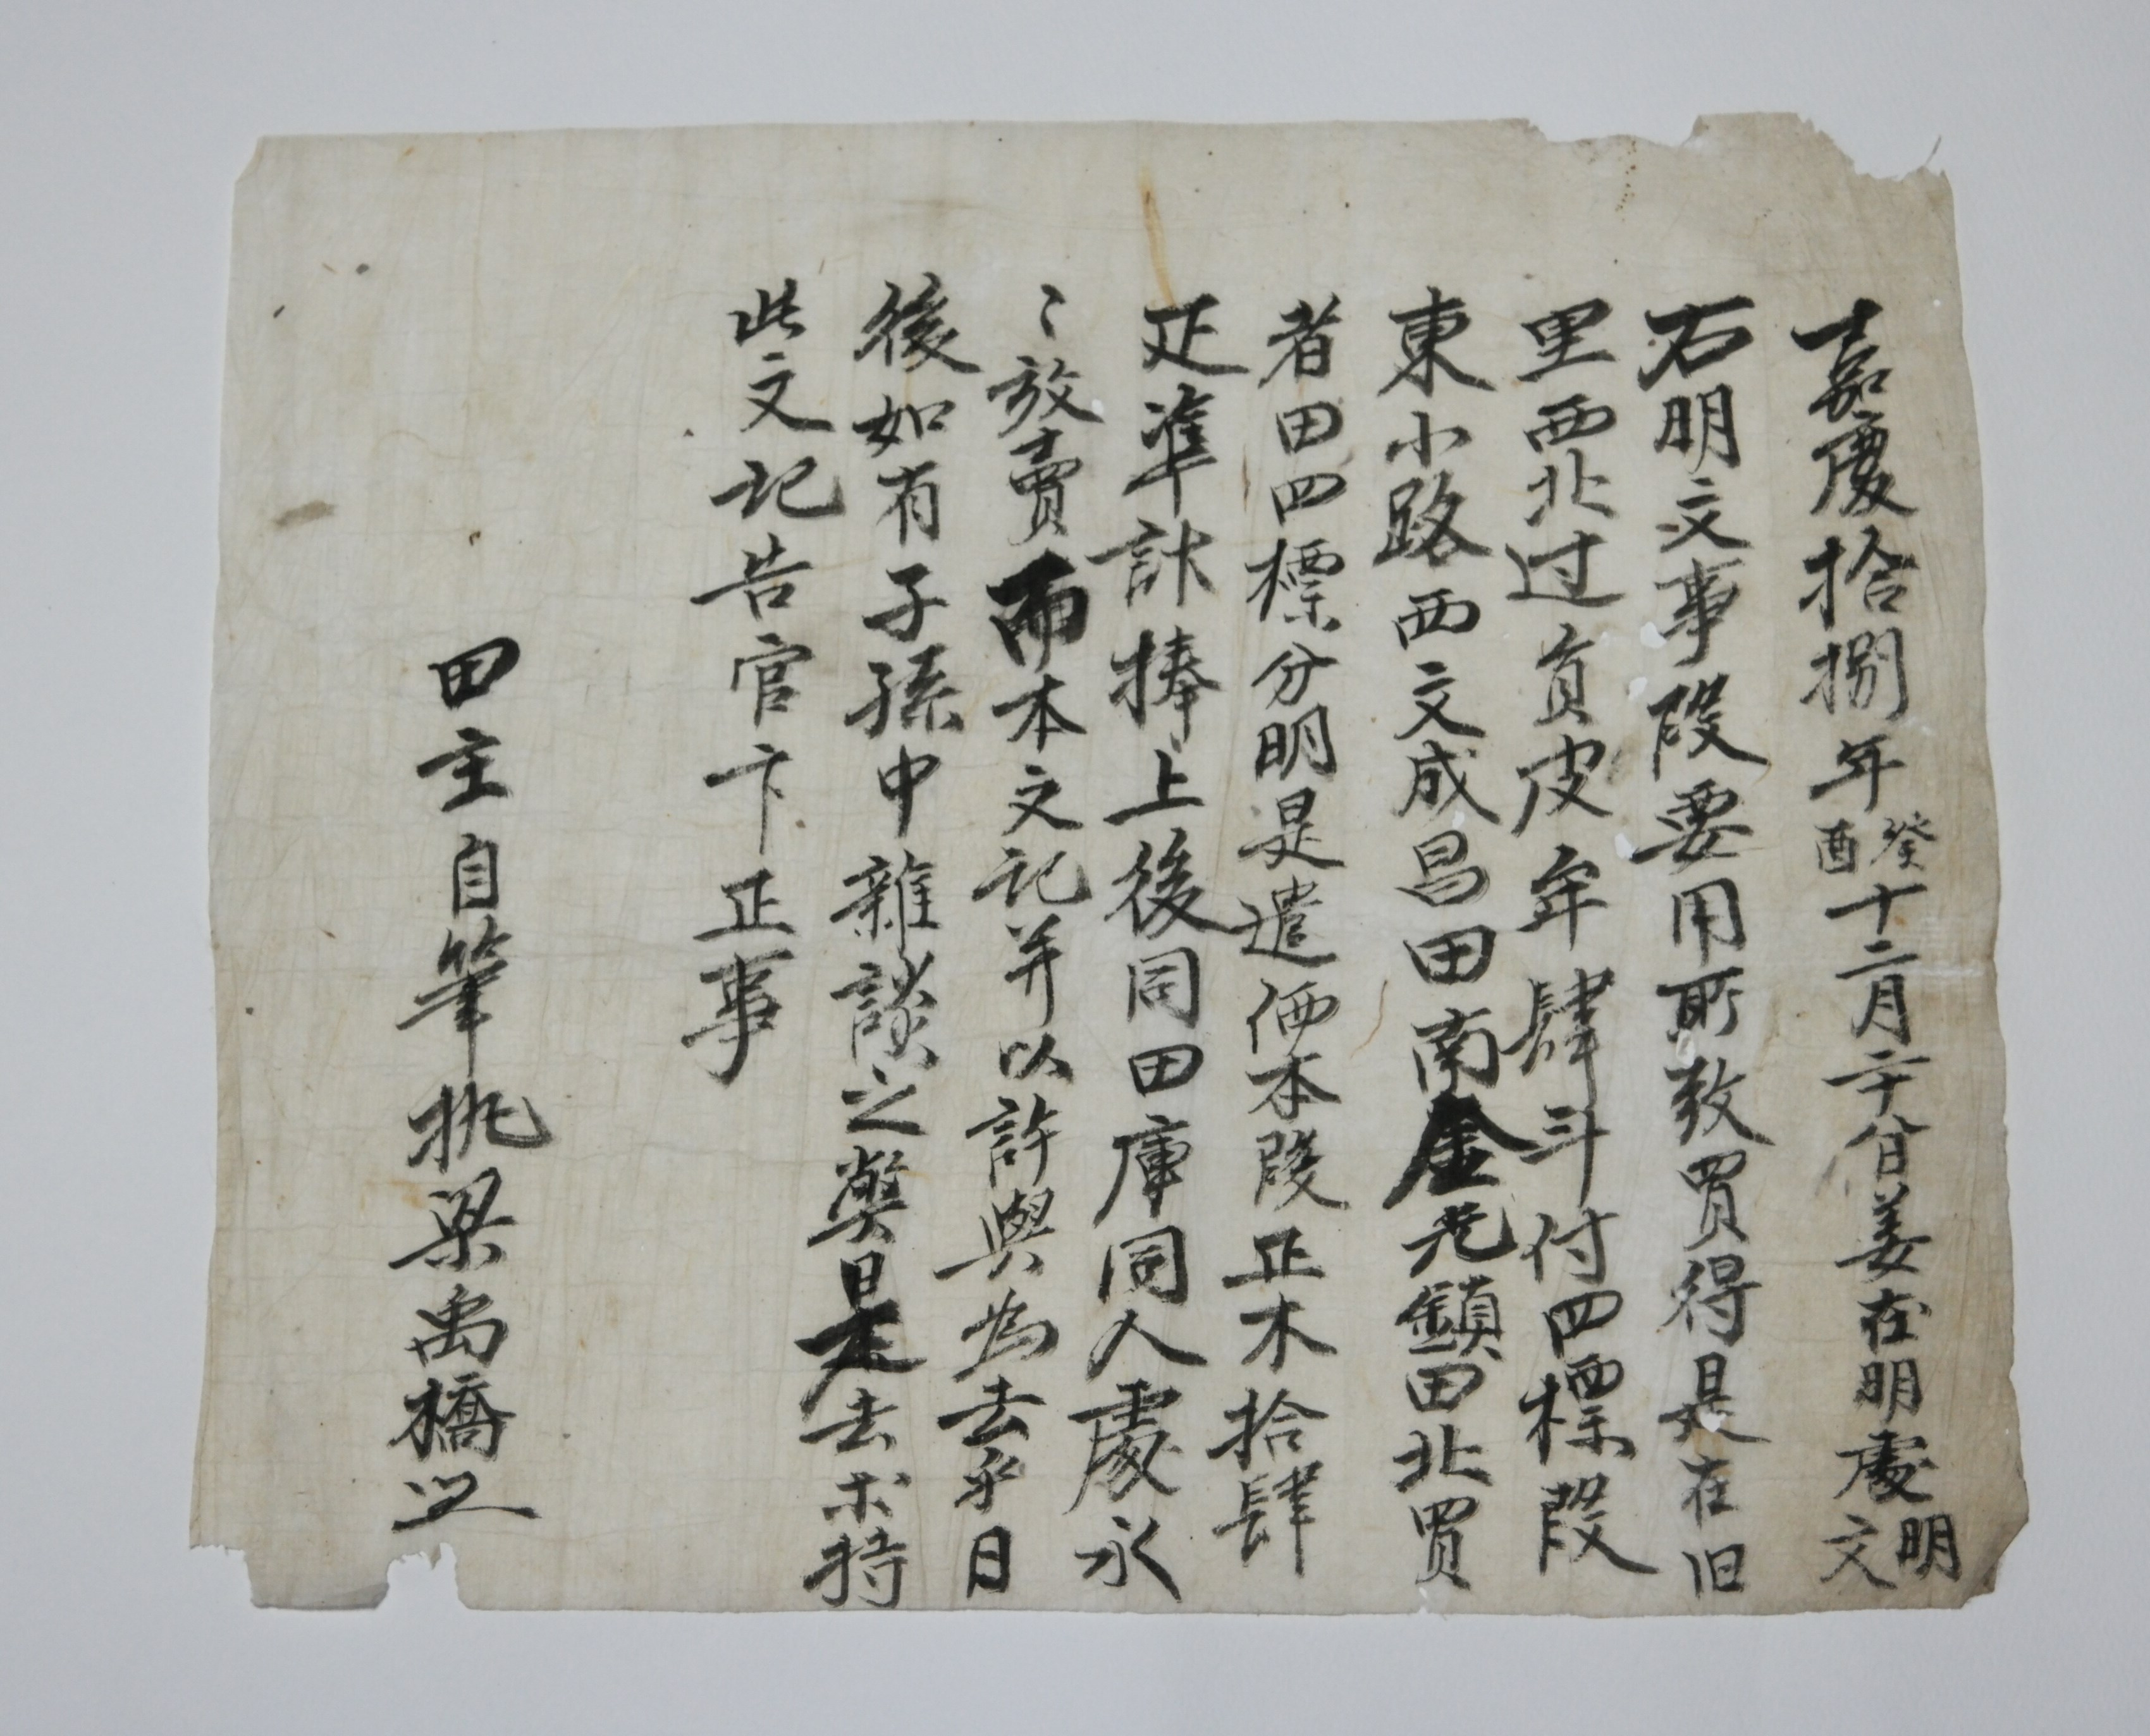 嘉慶拾捌年癸酉十二月二十八日姜在明處明文
右明文事段要用所致買得是在旧
里西北过員皮牟肆斗付四標段
東小路西文成昌田南金光鎮田北買
者田四標分明是遣価本段正木拾肆
疋準計捧上後同田庫同人處永
〻放賣而本文記并以許與為去乎日
後如有子孫中雜談之弊是去木持
此文記告官卞正事
田主自筆執梁禹橋